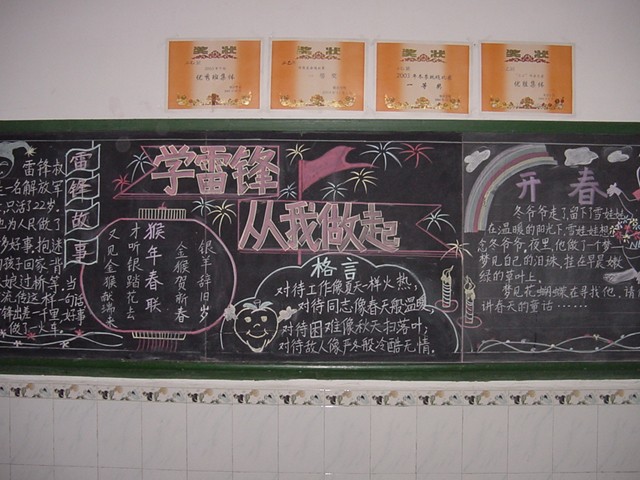 奖状
优秀班集体
奖状
一等奖
奖状
2003年冬季
一等奖
奖状
优胜集体
雷锋故事
雷锋叔
一名解放军
只活了22岁。
为人民做了
好事,抱迷
孩子回家,背
大娘过桥等,
流传这样一
锋出差一千里,
做了一火车。
学雷锋
从我做起
猴年春联
银羊辞旧岁
金猴贺新春
才听银蹄花去
又见金猴献瑞
格言
对待工作像夏天一样火热,
对待同志像春天般温暖
对待困难像秋天扫落叶;
对待敌人像严冬般冷酷无情。
开春
冬爷爷走了,留下雪娃娃
在温暖的阳光下,雪娃娃想
念冬爷爷,夜里,他做了个梦
梦见自己的泪珠,挂在野是嫩
绿的草叶上。
梦见花蝴蝶在寻找他,请
讲春天的童话……